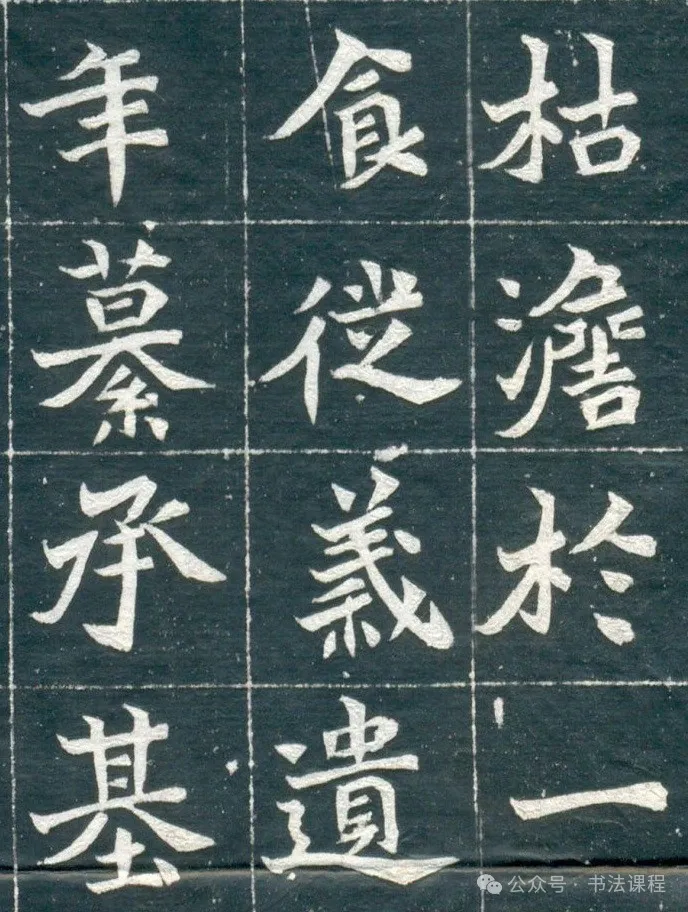 枯澹於一
食從義遺
年慕承基
公众号·书法课程